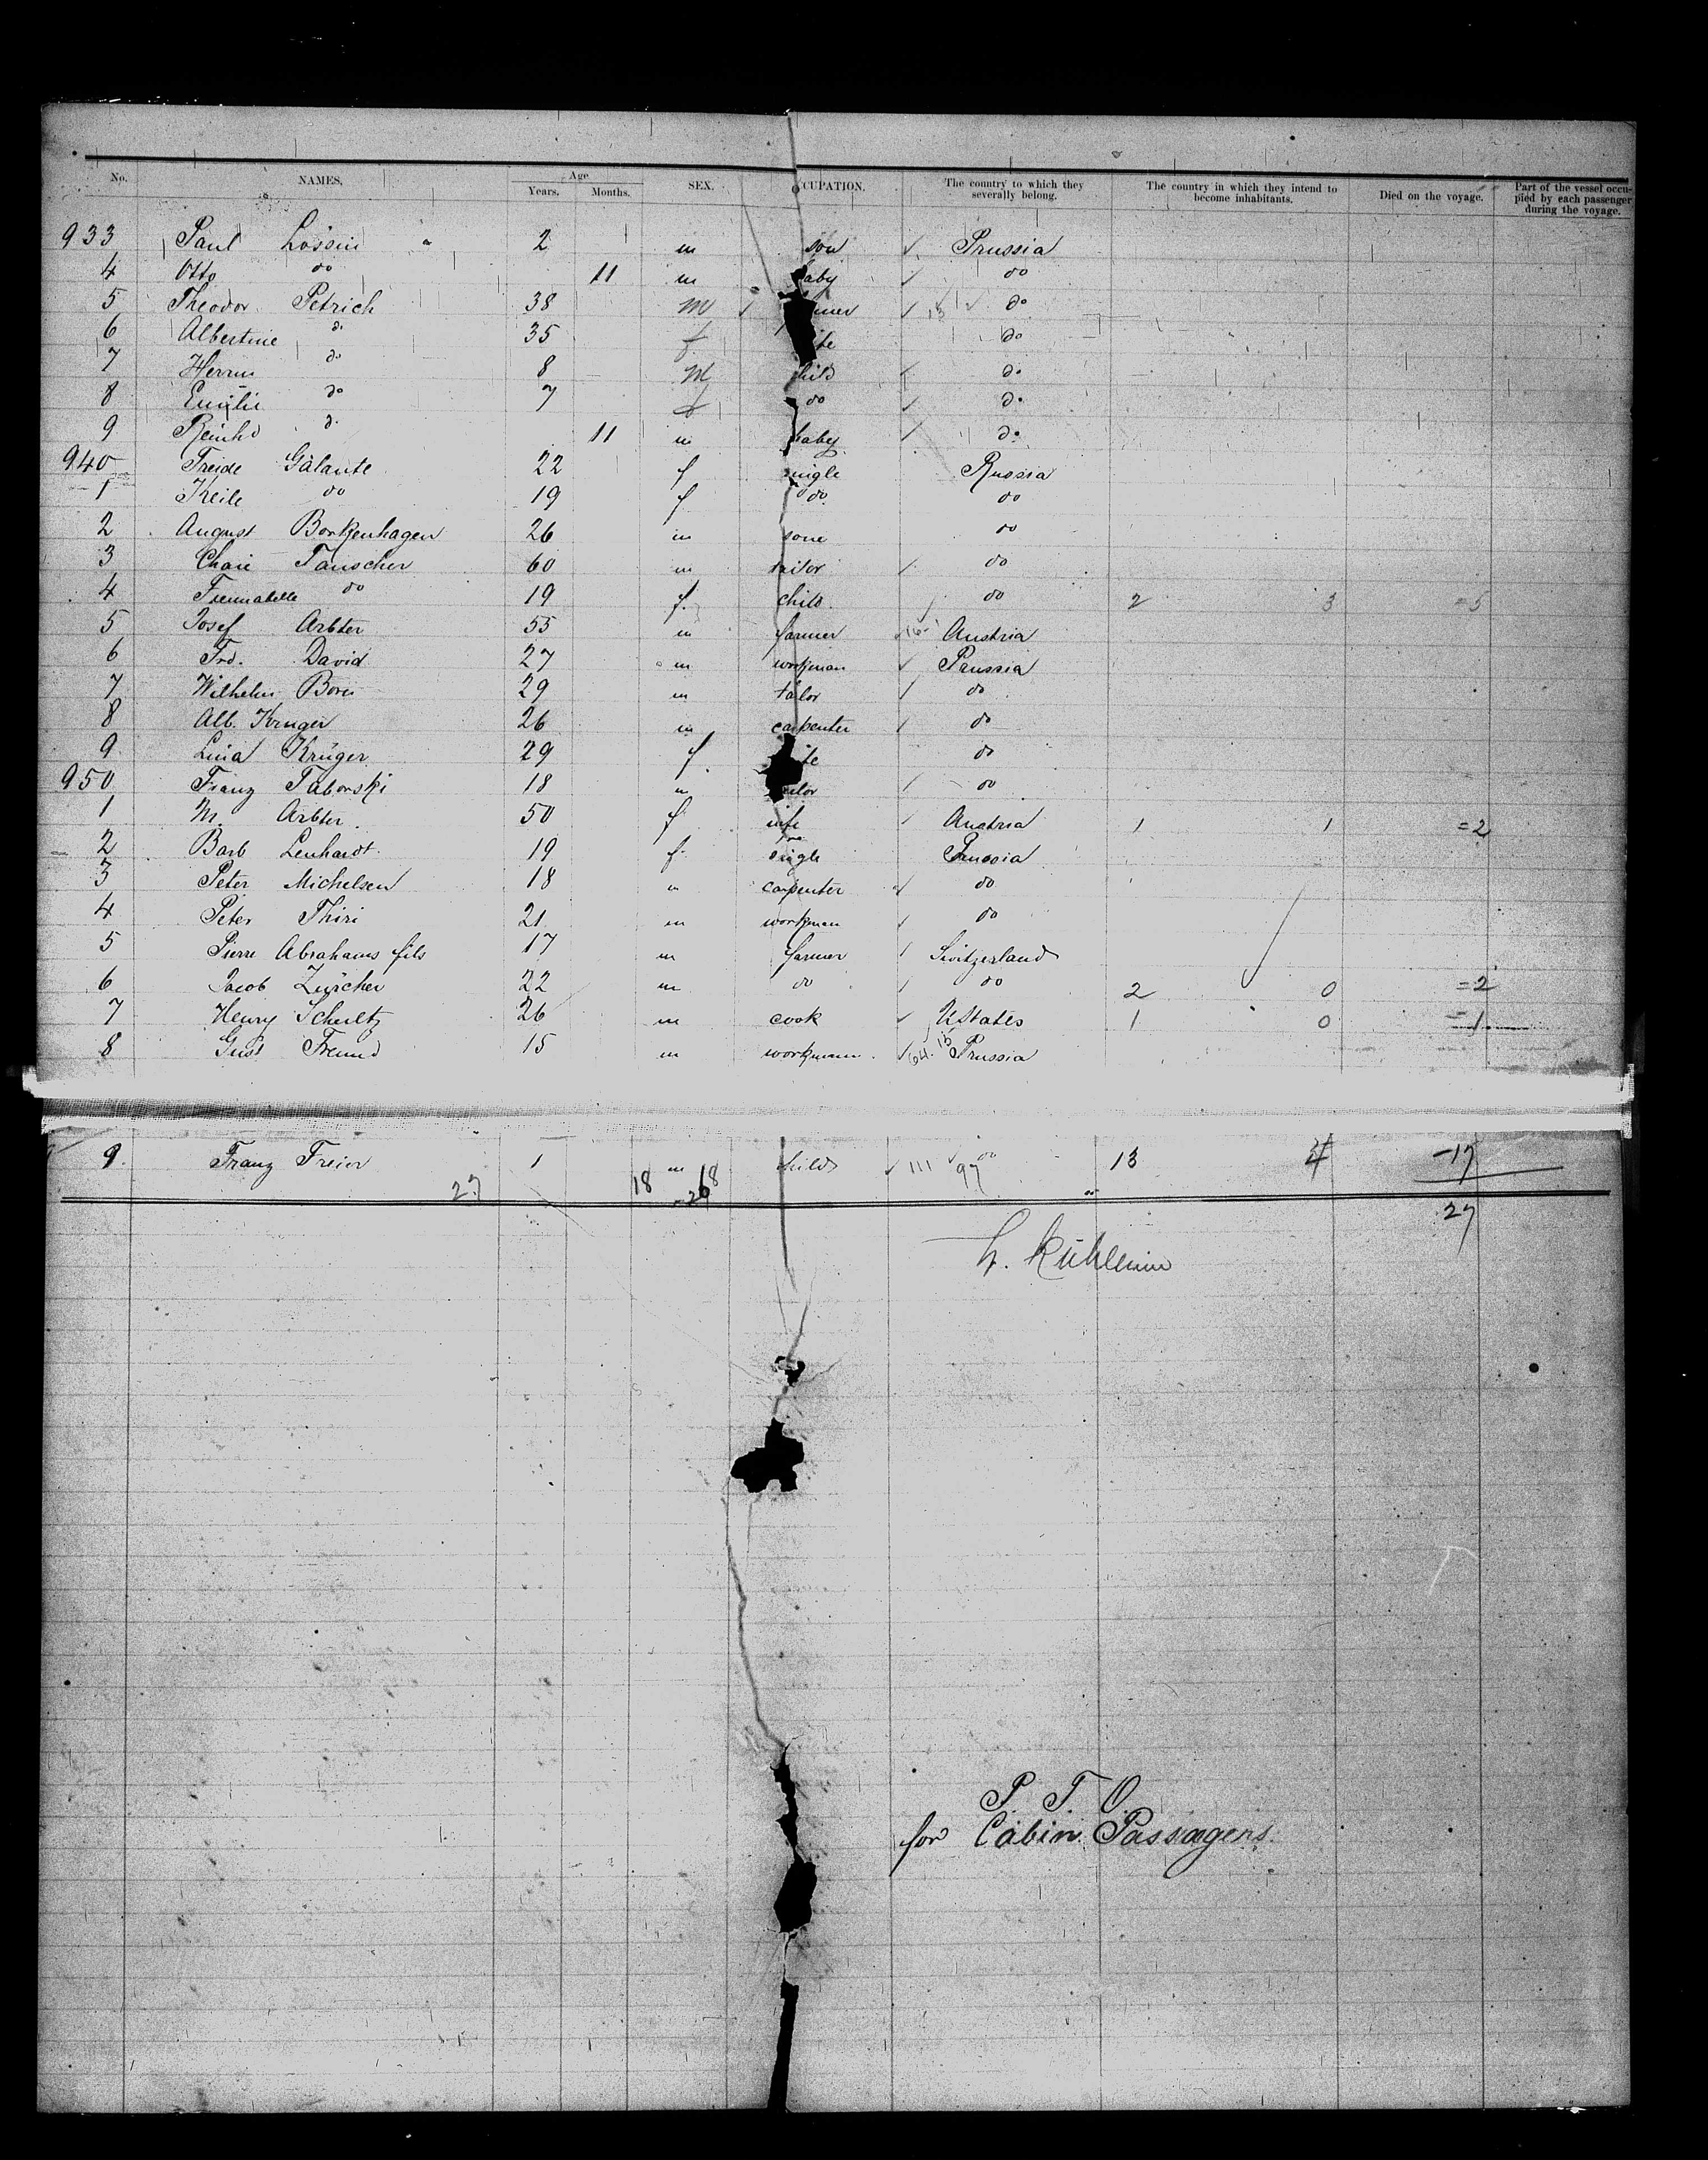 No. NAMES. Age Years. Months. SEX. CUPATION. The country to which they severally belong. The country in which they intend to become inhabitants. Died on the voyage. Part of the vessel occupied by each passenger during the voyage.
933 Paul Lossin 2 m son Prussia
4 Otto do 11 m aby do
5 Theodor Petrich 38 m mer 13 do
6 Albertine do 35 f fe do
7 Herrm do 8 m hild do
8 Emilie do 7 f do do
9 Reinhd do 11 m baby do
940 Freide Galante 22 f single Russia
1 Keile do 19 f do do
2 August Borkenhagen 26 m do
3 Chaie Tauscher 60 m tailor do
4 do 19 f child do 2 3 =5
5 Josef Arbter 55 m farmer 16 Austria
6 Frd. David 27 m workman Prussia
7 Wilhelm 29 m talor do
8 Alb. Kruger 26 m carpenter do
9 Lina Krüger 29 f fe do
950 Franz Taborski 18 m do
1 M. Arbter 50 f wife Austria 1 1 =2
2 Barb Lenhardt 19 f single Prussia
3 Peter Michelsen 18 m carpenter do
4 Peter Thiri 21 m workman do
5 Pierre Abrahams fils 17 m farmer Switzerland
6 Jacob Zürcher 22 m do do 2 0 =2
7 Henry Schultz 26 m cook UStates 1 0 =1
8 Gust Freund 15 m workman 64. 15 Prussia
9. Franz Freier 1 m child 111 97 do 13 4 -17
27 18 26 18
27
P T O
for Cabin Passagers.